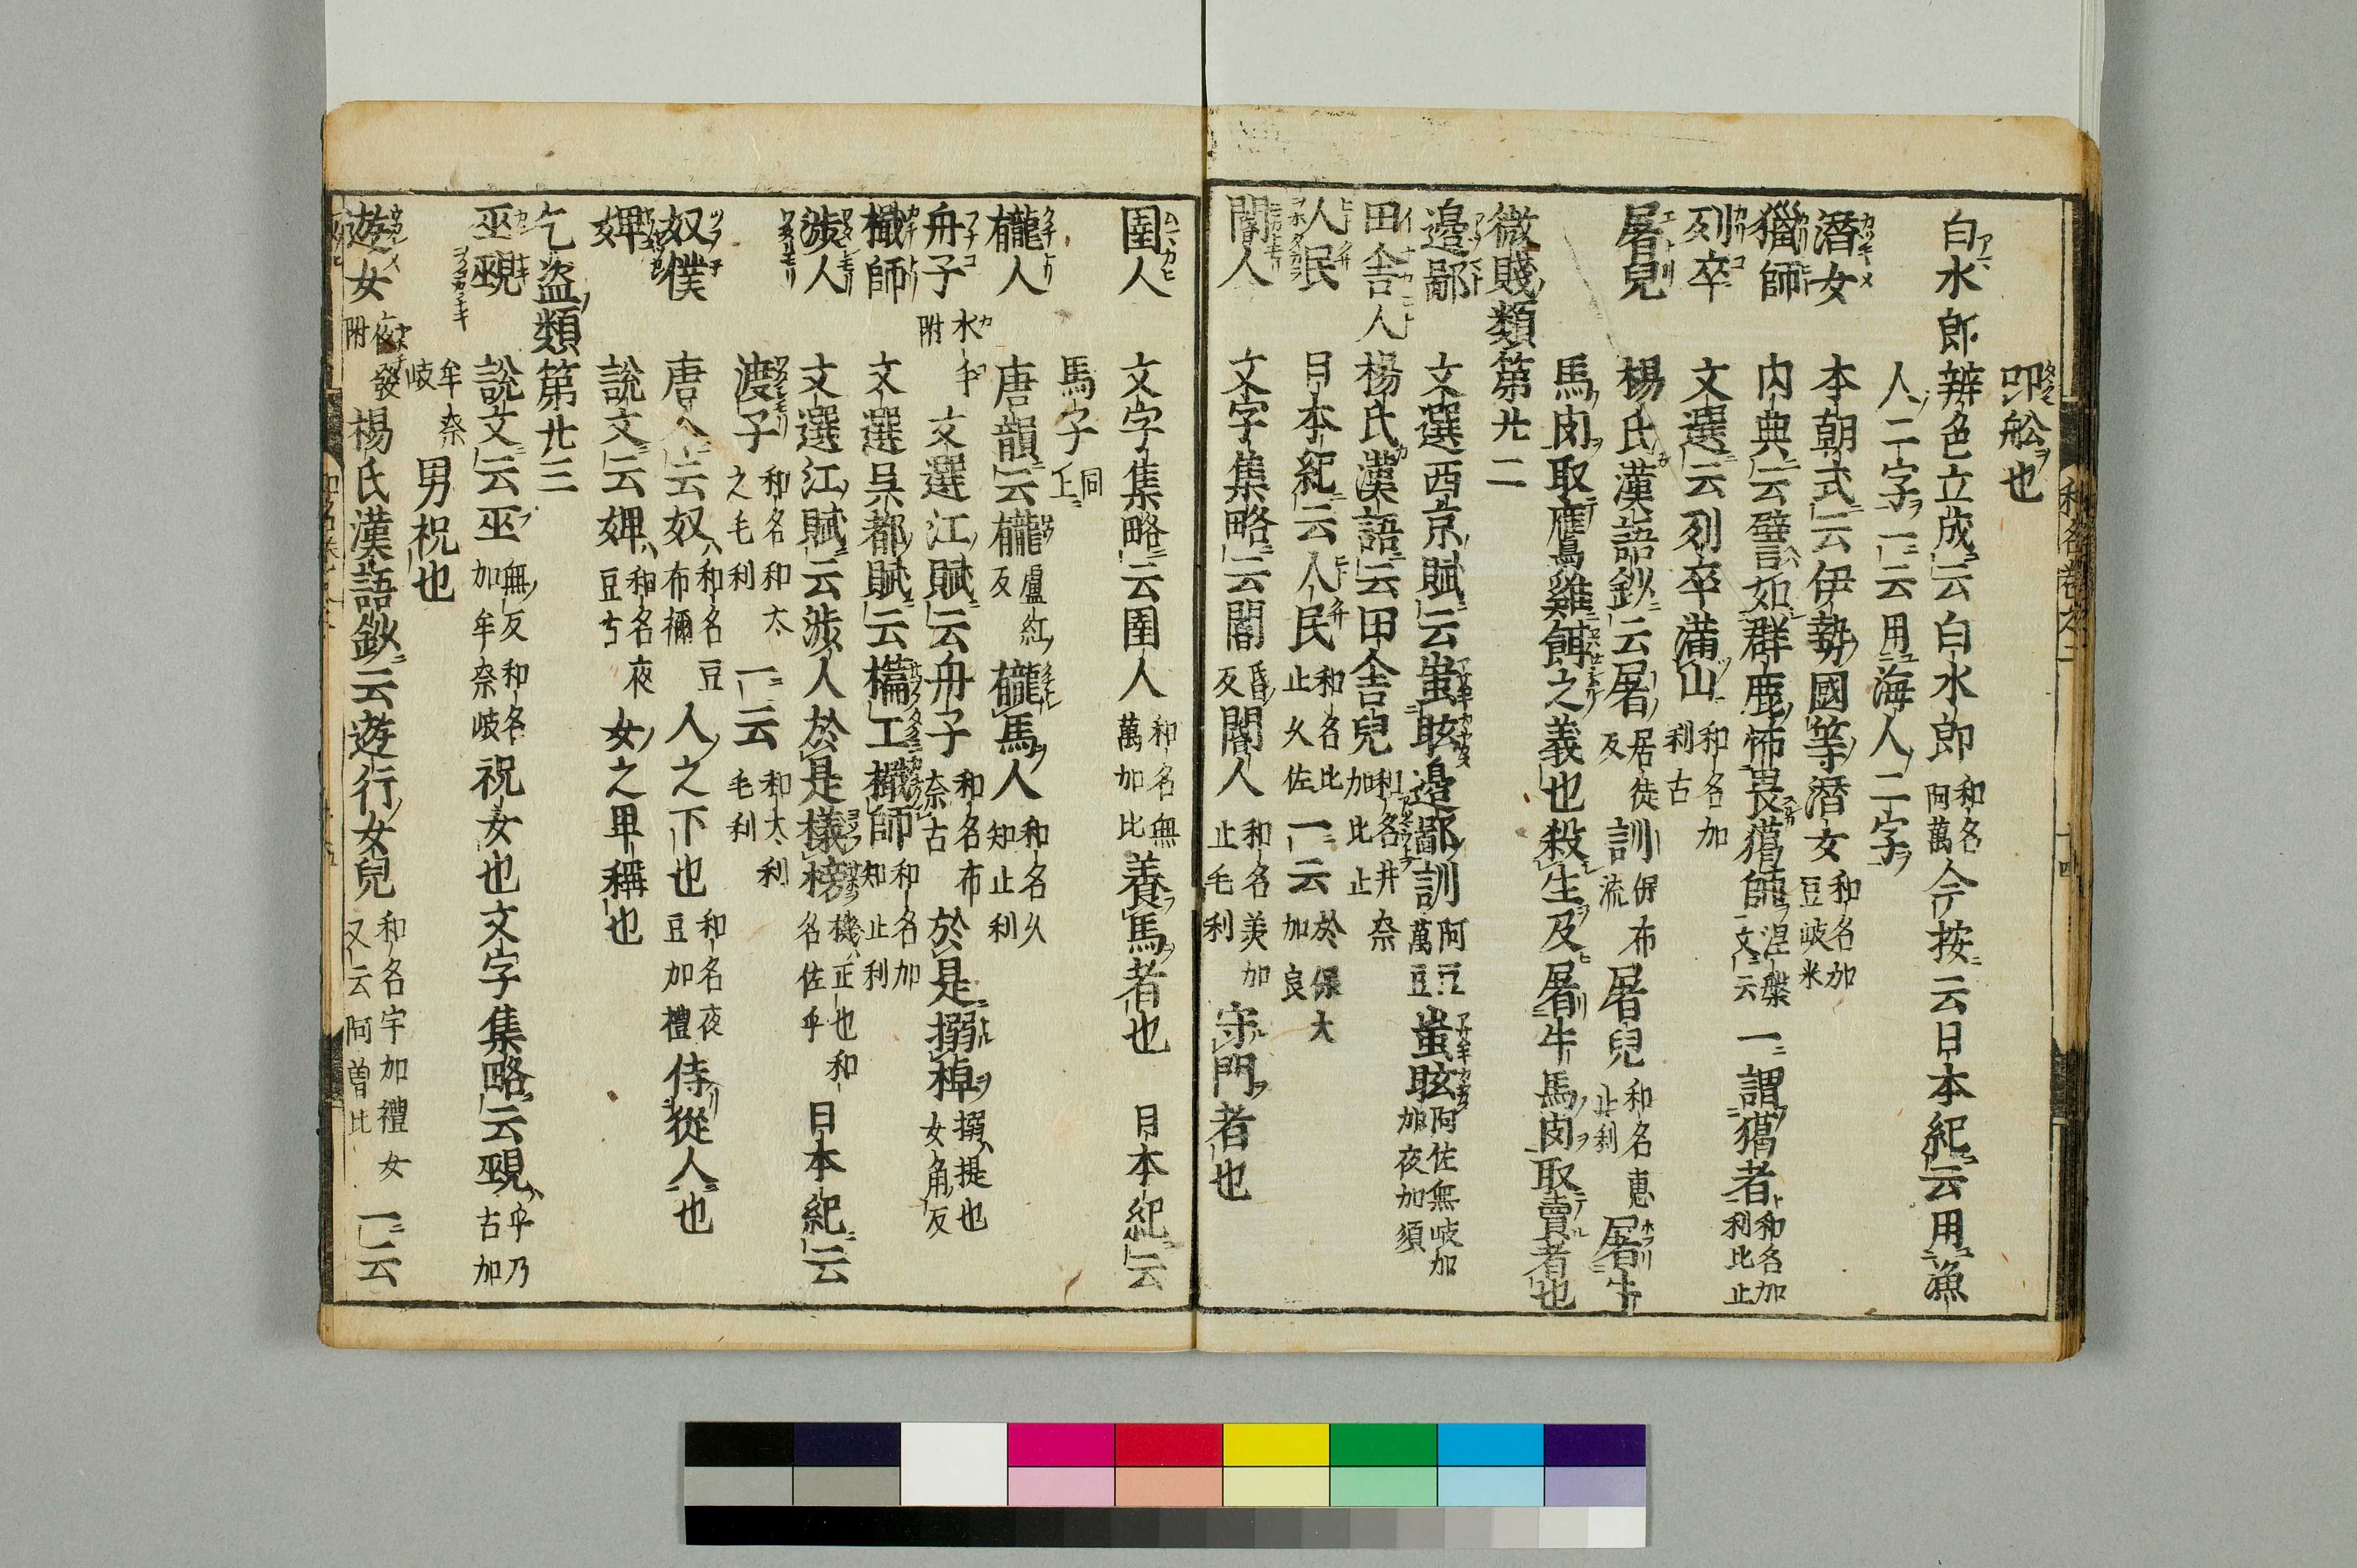 叩舩也
白水郎 辨色立成云白水郎 和名阿萬 今按云日本紀云用漁
人二字一云用海人二字
潛女 本朝式云伊勢國等潛女 和名加豆岐米
獵師 内典云譬如群鹿怖畏獦師 涅槃文云 一謂獦者 和名加利比止
列卒 文選云列卒滿山 和名加利古
屠兒 楊氏漢語鈔云屠 居徒反 訓保布流 屠兒 和名惠止利 屠牛
馬肉取鷹雞餌之義也殺生及屠牛馬肉取賣者也
微賤類第廿二
邊鄙 文選西京賦云蚩眩邊鄙訓 阿豆萬豆 蚩眩 阿佐無岐加加夜加須
田舎人 楊氏漢語云田舎兒 和名井奈加比止
人民 日本紀云人民 和名比止久佐 一云 於保大加良
閽人 文字集略云閽 昏反 閽人 和名美加止毛利 守門者也
圉人 文字集略云圉人 和名無萬加比 養馬者也 日本紀云
馬子 同上
櫳人 唐韻云櫳 盧紅反 櫳馬人 和名久知止利
舟子 水手附 文選江賦云舟子 和名布奈古 於是搦棹 搦提也女角反
檝師 文選呉都賦云檝工檝師 和名加知止利
渉人 文選江賦云渉人於是檥榜 檥正也和名佐乎 日本紀云
渡子 和名和太之毛利 一云 和太利毛利
奴僕 唐令云奴 和名豆布禰 人之下也 和名夜豆加禮 侍從人也
婢 説文云婢 和名夜豆古 女之卑稱也
乞盗類第廿三
巫覡 説文云巫 無反加牟奈岐 和名 祝女也文字集略云覡 乎乃古加
牟奈岐 男祝也
遊女 夜發附 楊氏漢語鈔云遊行女兒 和名宇加禮女又云阿曽比 一云